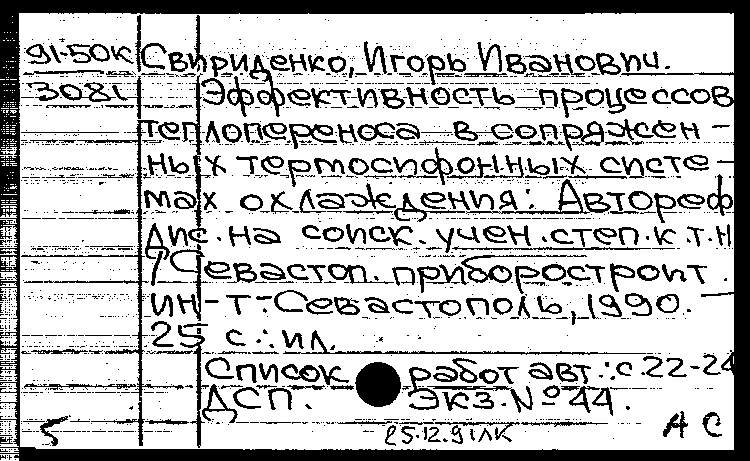 91-50к Свириденко, Игорь Иванович.
3081 Эффективность процессов
теплопереноса в сопряжен-
ных термосифонных систе-
мах охлаждения: Автореф
дис. на соиск. учен. степ. к.т.н
/Севастоп. приборостроит.
ин-т.-Севастополь, 1990. —
25 с.: ил.
Список работ авт.: с.22-24
ДСП. Экз. № 44.
5 25.12.91ЛК А С